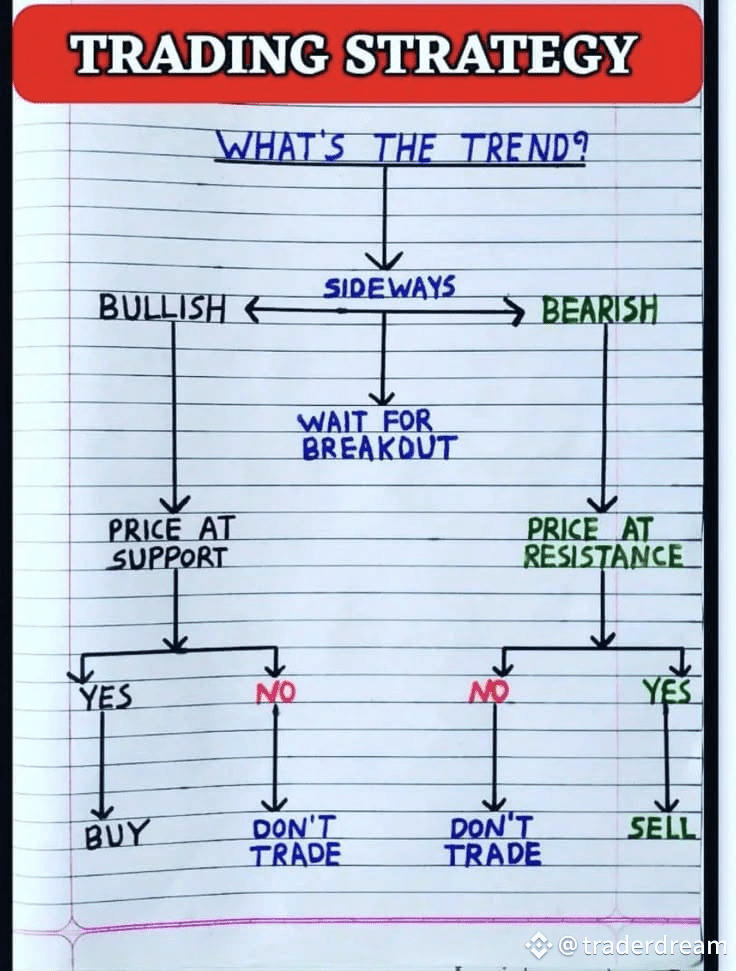 TRADING STRATEGY
WHAT'S THE TREND?
SIDEWAYS
BULLISH
BEARISH
WAIT FOR
BREAKOUT
PRICE AT
SUPPORT
PRICE AT
RESISTANCE
YES
NO
NO
YES
BUY
DON'T
TRADE
DON'T
TRADE
SELL
@traderdream